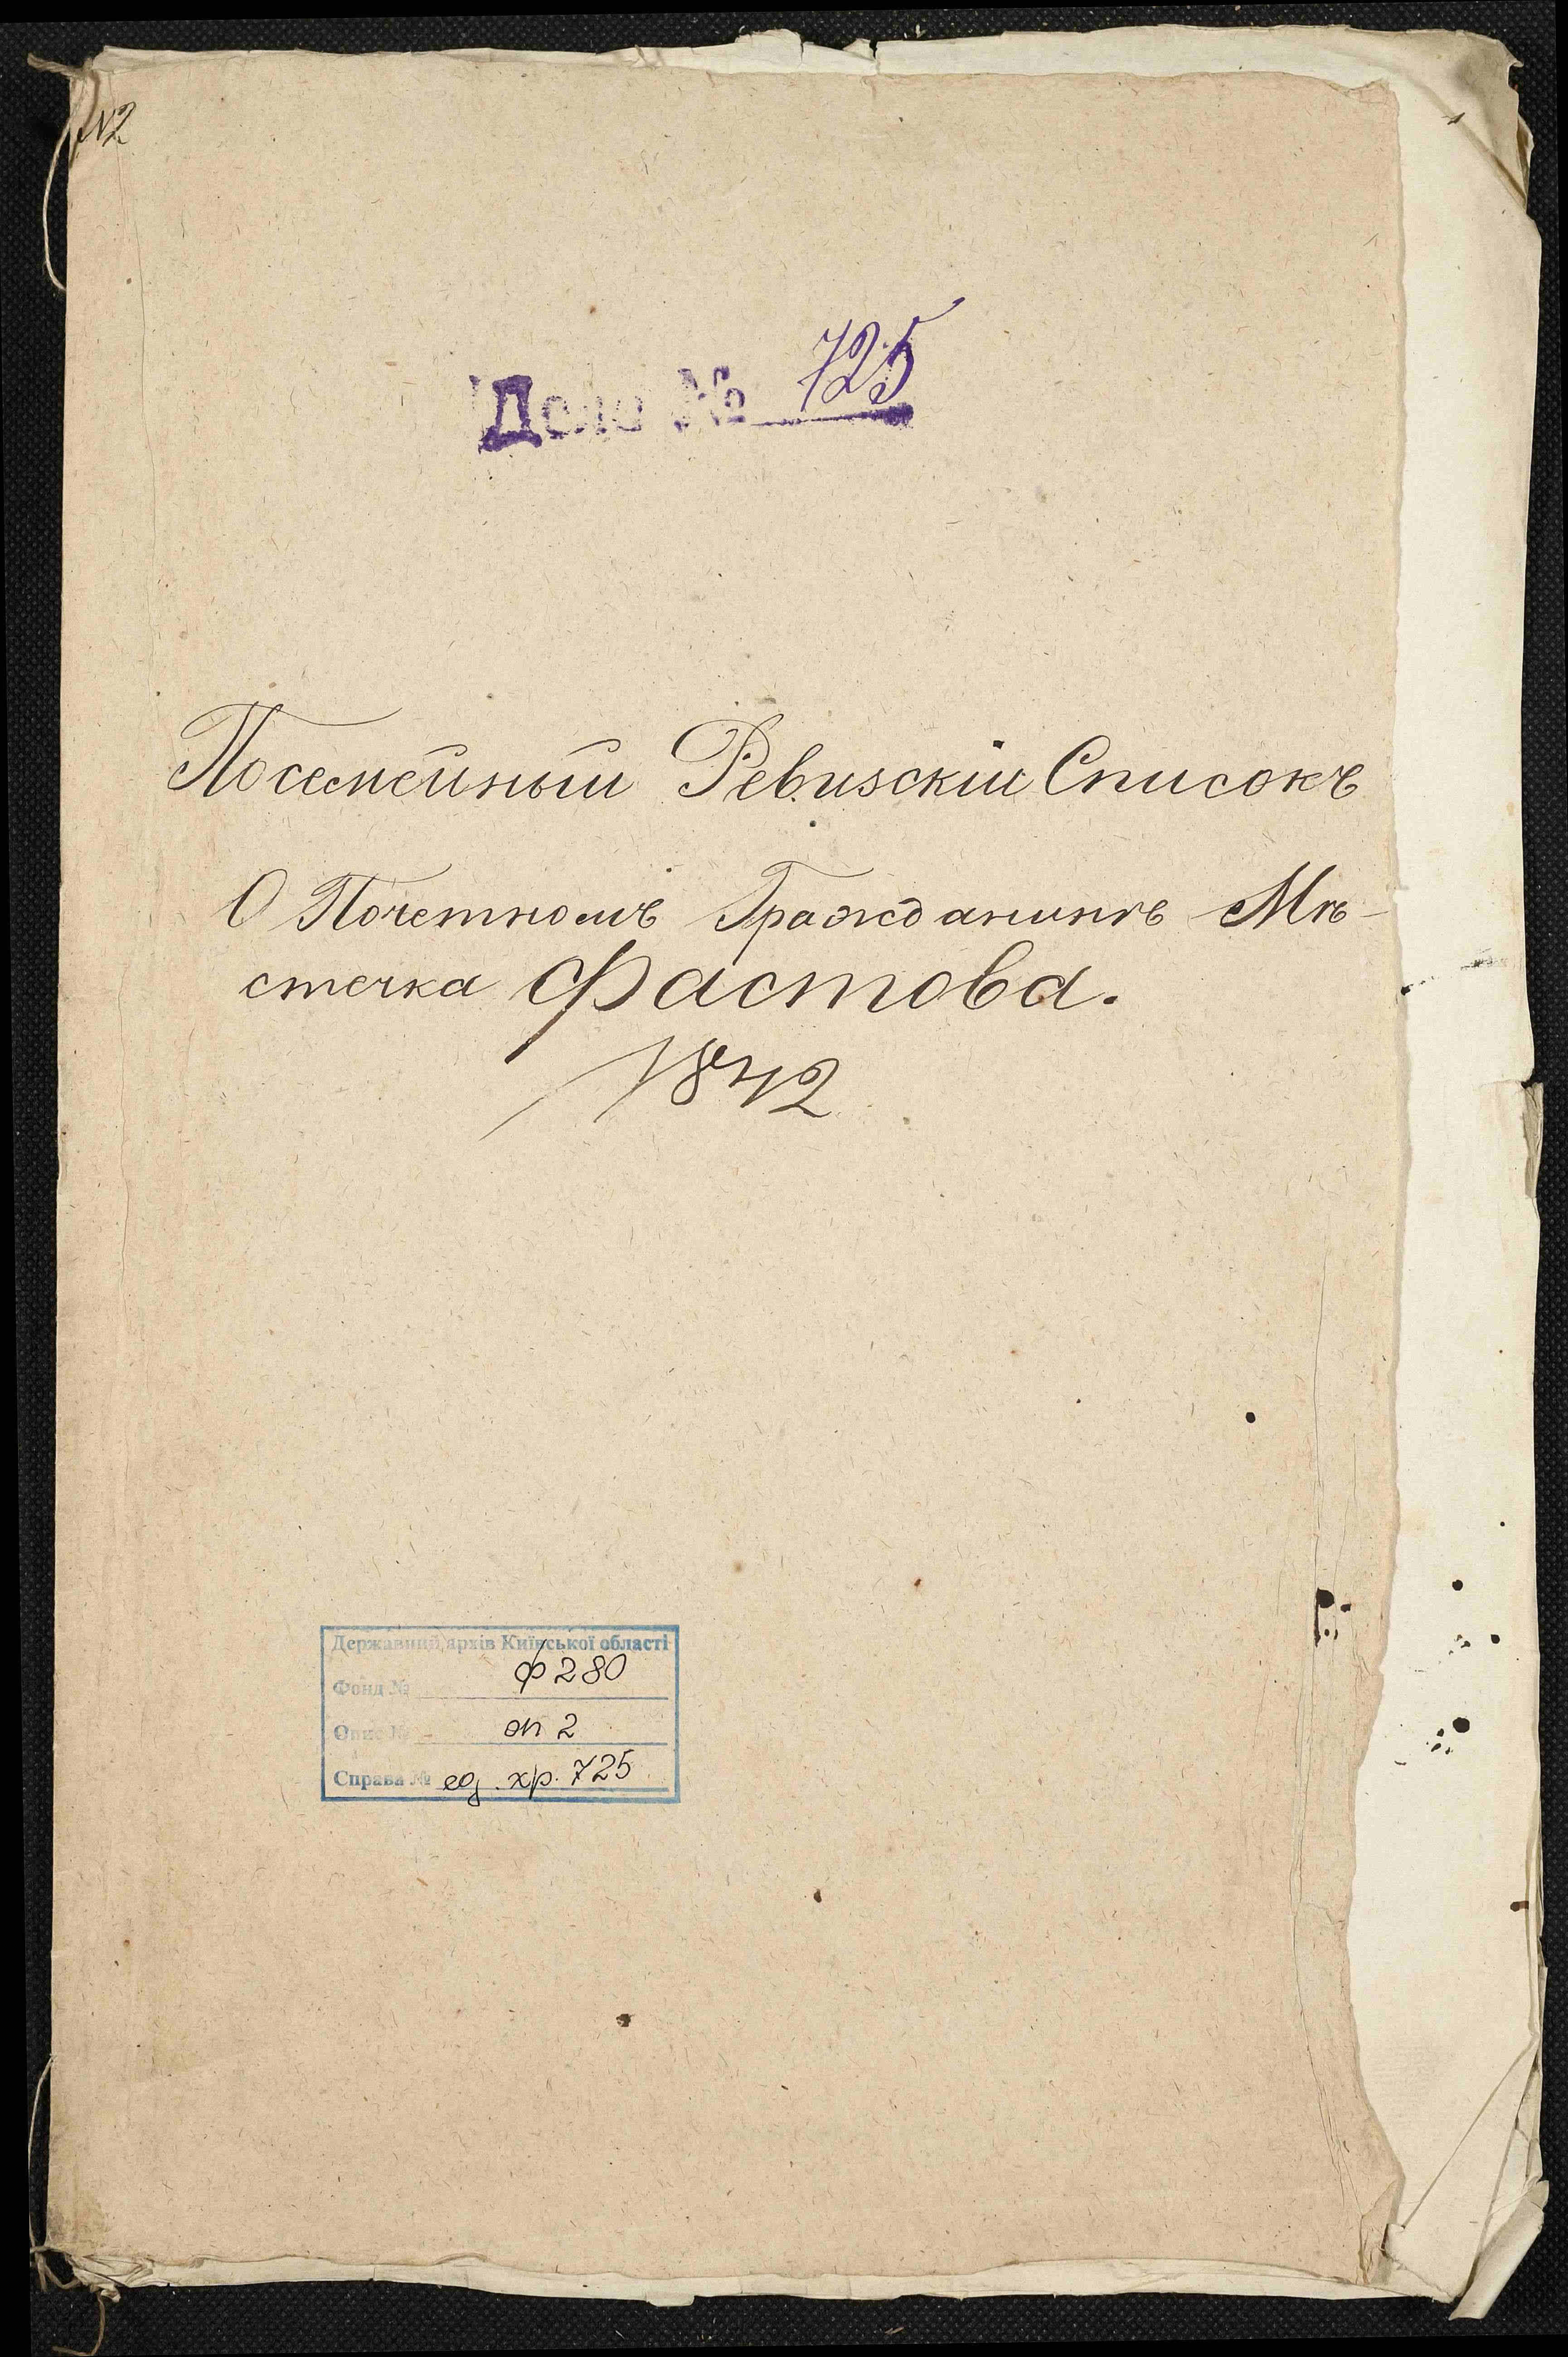 №2
Дело № 725
Посемейный Ревизскій Списокъ
О Почетномъ Гражданинѣ Мѣ-
стечка Фастова.
1842
Державний архів Київської області
Фонд № ф 280
Опис № оп 2
Справа № ед. хр. 725